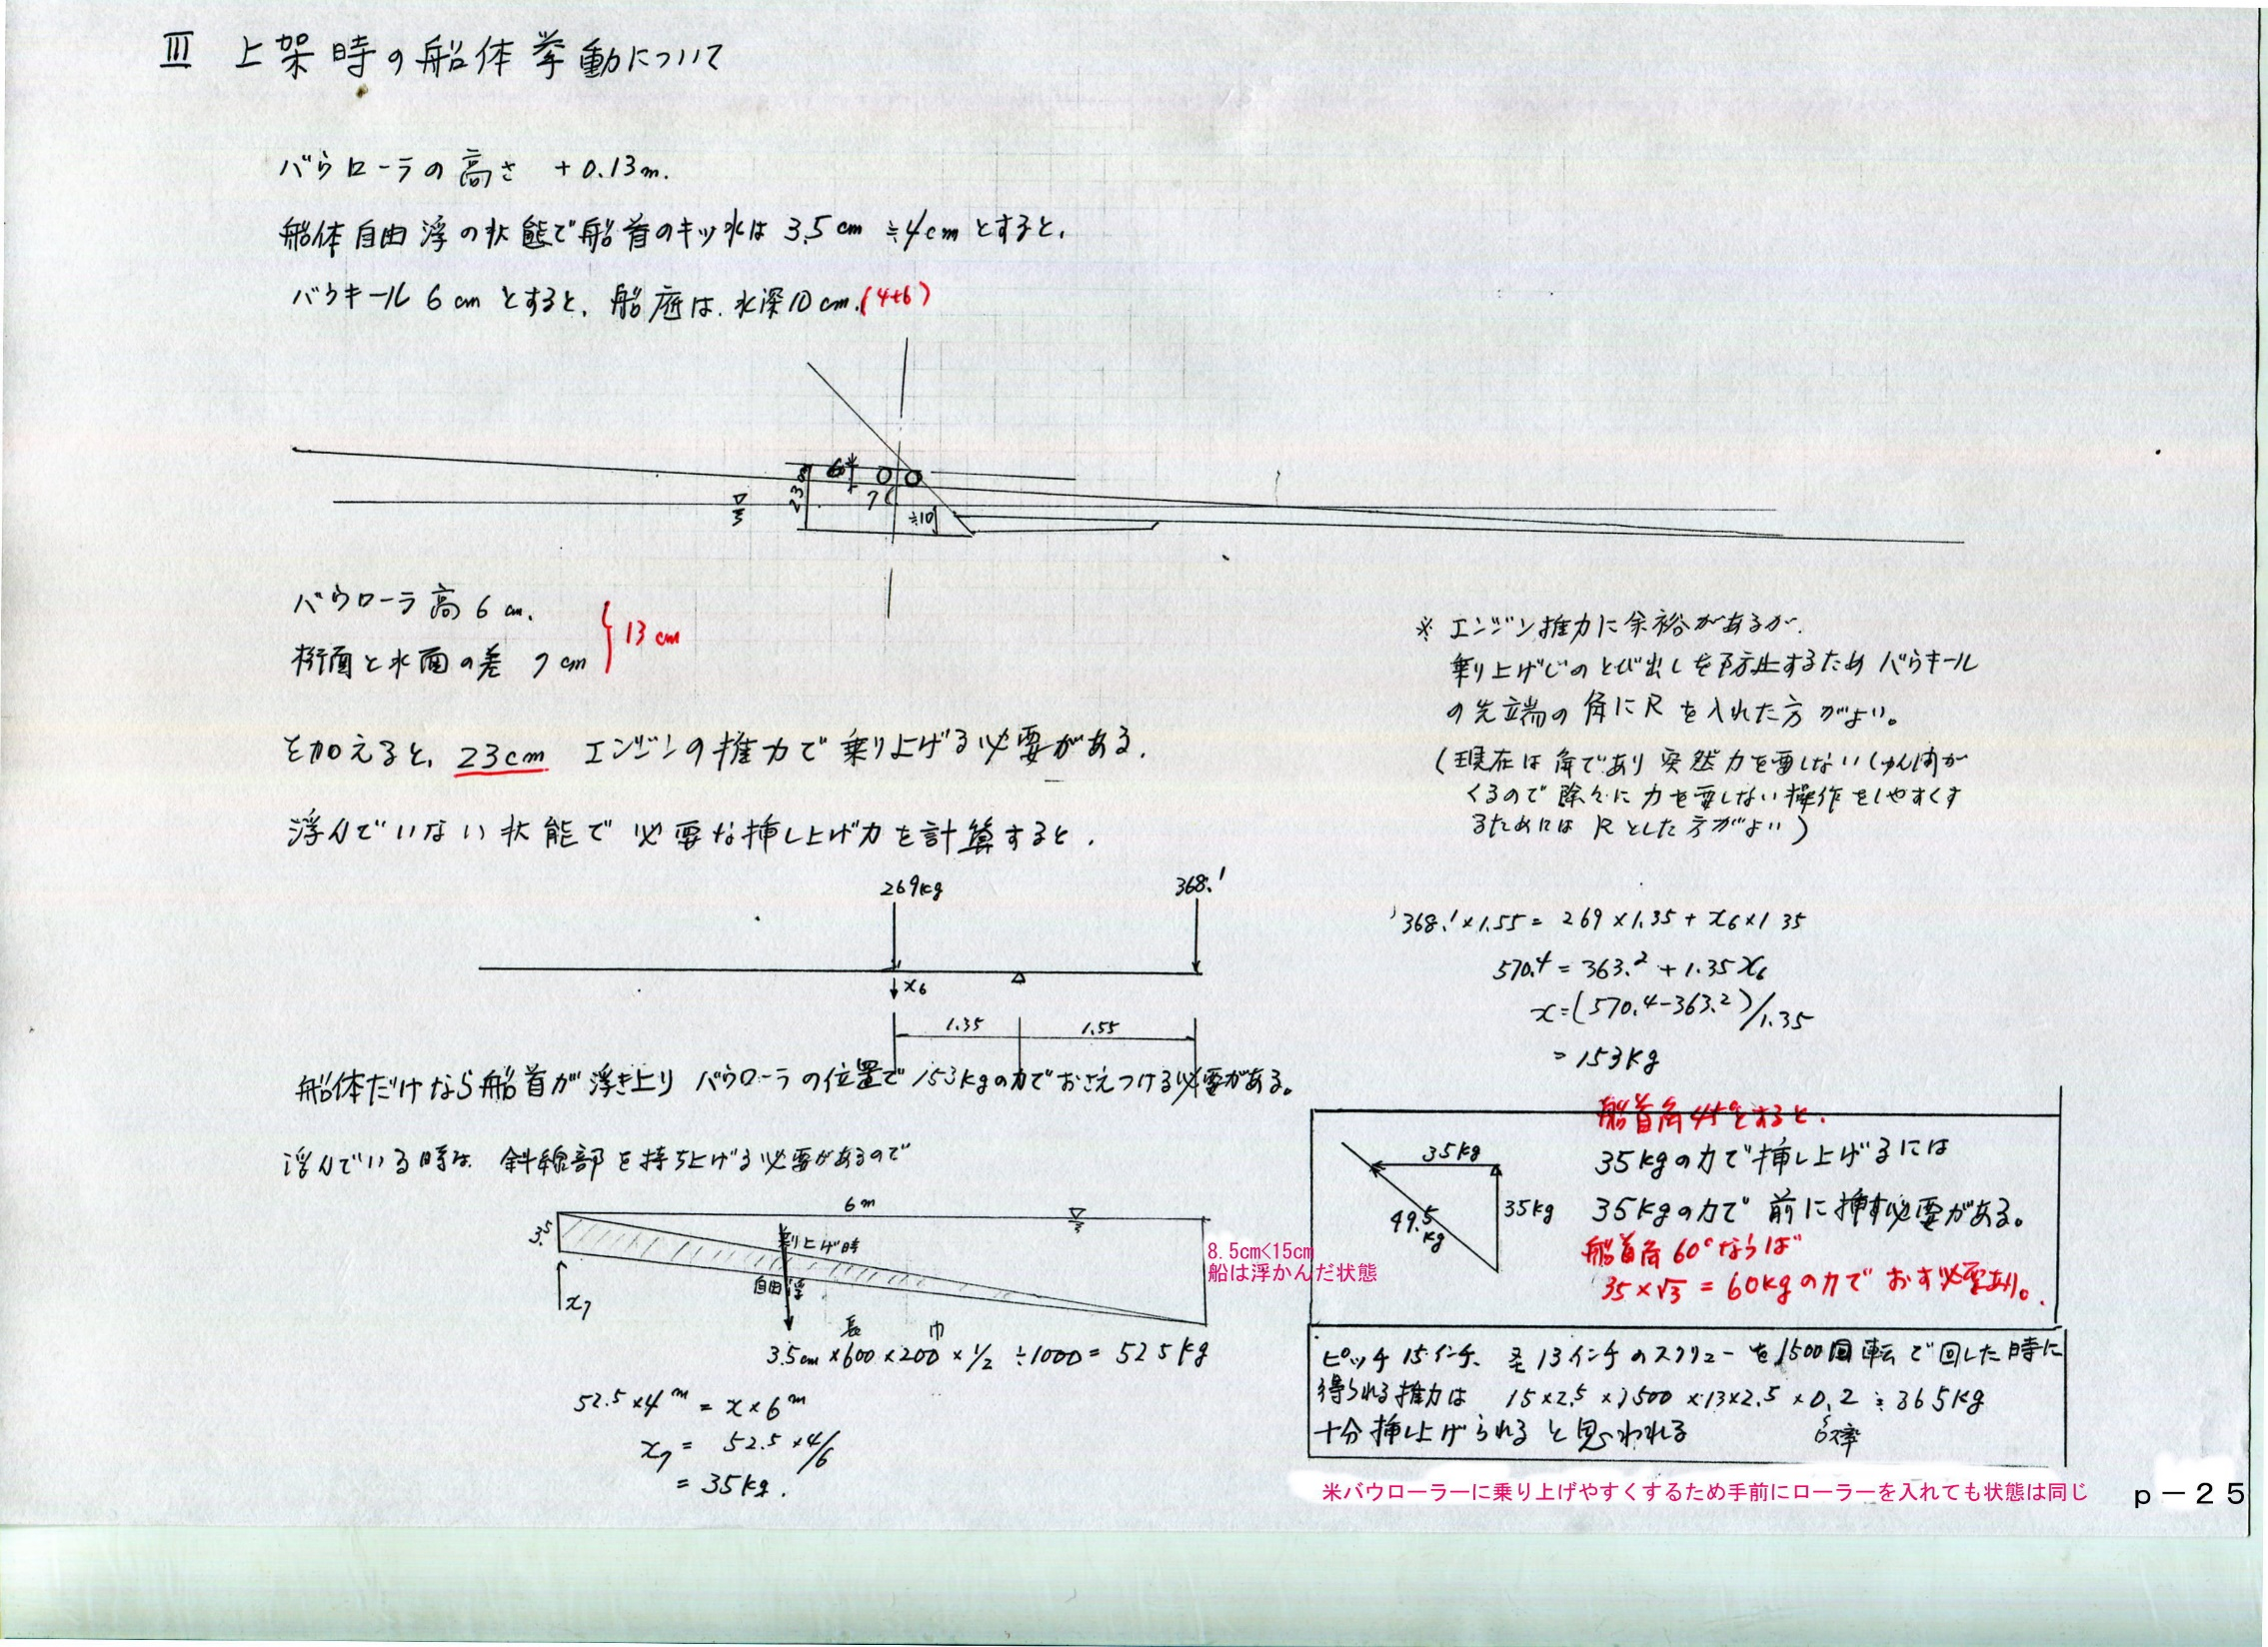 III 上架時の船体挙動について
バウローラの高さ +0.13m.
船体自由浮の状態で船首のキッ水は 3.5cm ≒4cm とすると、
バウキール 6cm とすると、船底は、水深10cm.(4+6)
6
7
23
≒10
バウローラ高 6cm.
桁面と水面の差 7cm
13cm
を加えると、23cm エンジンの推力で乗り上げる必要がある.
浮んでいない状態で必要な挿し上げ力を計算すると.
269kg
368.1
x6
1.35
1.55
船体だけなら船首が浮き上り バウローラの位置で153kgの力でおさえつける必要がある。
浮んでいる時は 斜線部を持ち上げる必要があるので
6m
3.5
乗り上げ時
自由浮
x7
8.5cm<15cm
船は浮かんだ状態
長 巾
3.5cm×600×200×1/2 ÷1000= 52.5kg
52.5×4m = x×6m
x7 = 52.5×4/6
= 35kg.
※ エンジン推力に余裕があるが.
乗り上げじのとび出しを防止するためバウキール
の先端の角にRを入れた方がよい。
(現在は角であり突然力を要しないしゅん間が
くるので除々に力を要しない操作をしやすくす
るためには Rとした方がよい)
368.1×1.55= 269×1.35+x6×1.35
570.4=363.2+1.35x6
x=(570.4-363.2)/1.35
=153kg
船首角45°とすると.
35kg
35kg
49.5kg
35kgの力で挿し上げるには
35kgの力で前に挿す必要がある。
船首角60°ならば
35×√3 = 60kgの力でおす必要あり。
ピッチ15インチ、径13インチのスクリューを1500回転で回した時に
得られる推力は 15×2.5×1500×13×2.5×0.2 ≒365kg
十分挿し上げられると思われる
米バウローラーに乗り上げやすくするため手前にローラーを入れても状態は同じ
p－25